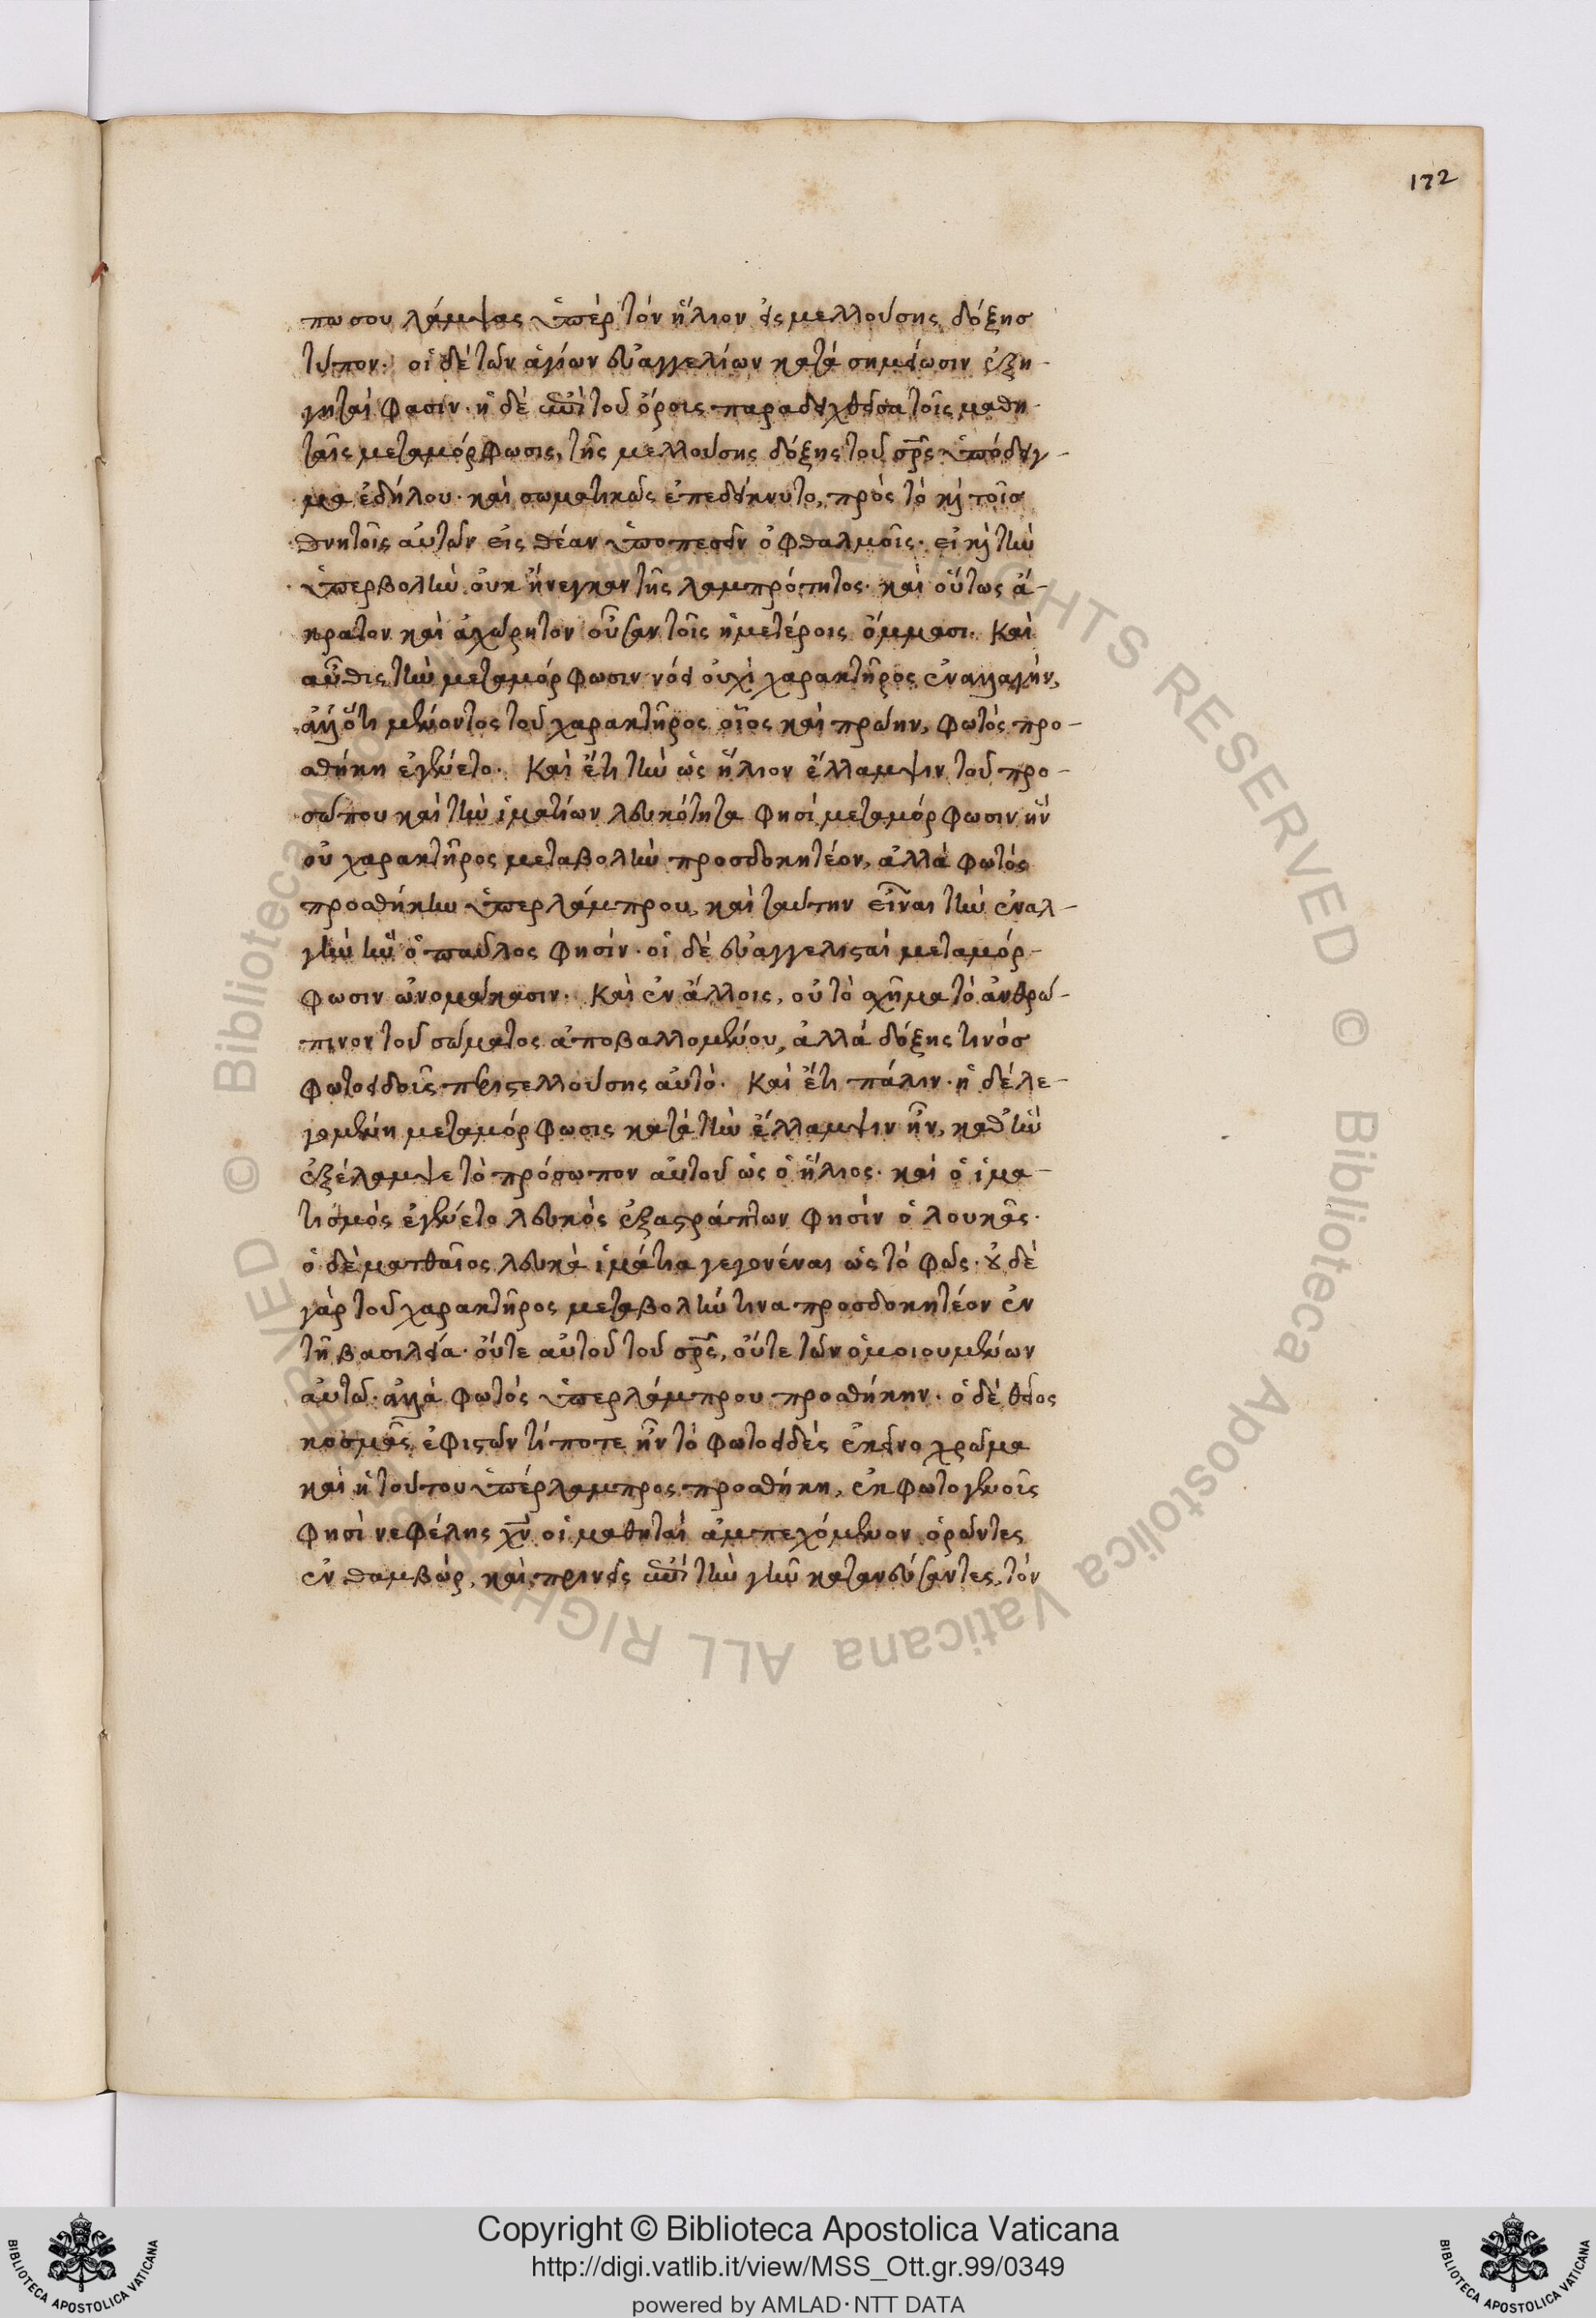 172
πω σου λάμψας ὑπὲρ τὸν ἥλιον εἰς μελλούσης δόξης
τύπον· οἱ δὲ τῶν ἁγίων εὐαγγελίων κατὰ σημείωσιν ἐξη-
γηταί φασιν· ἡ δὲ ἐπὶ τοῦ ὄροις παραδειχθεῖσα τοῖς μαθη-
ταῖς μεταμόρφωσις, τῆς μελλούσης δόξης τοῦ σρ̅ς ὑπόδειγ-
μα ἐδήλου· καὶ σωματικῶς ἐπεδείκνυτο, πρὸς τὸ κὴ τοῖς
θνητοῖς αὐτῶν εἰς θέαν ὑποπεσεῖν ὀφθαλμοῖς· εἰ κὴ τὴν
ὑπερβολὴν οὐκ ἤνεγκαν τῆς λαμπρότητος· καὶ οὕτως ἄ-
κρατον καὶ ἀχώρητον οὖσαν τοῖς ἡμετέροις ὄμμασι. Καὶ
αὖθις τὴν μεταμόρφωσιν νόει οὐχὶ χαρακτῆρος ἐναλλαγήν,
ἀλλ' ὅτι μένοντος τοῦ χαρακτῆρος οἷος καὶ πρώην, φωτὸς προ-
σθήκη ἐγένετο. Καὶ ἔτι τὴν ὡς ἥλιον ἔλλαμψιν τοῦ προ-
σώπου καὶ τὴν ἱματίων λευκότητα φησὶ μεταμόρφωσιν ἣν
οὐ χαρακτῆρος μεταβολὴν προσδοκητέον, ἀλλὰ φωτὸς
προσθήκην ὑπερλάμπρου, καὶ ταύτην εἶναι τὴν ἐναλ-
γὴν ἣν ὁ παῦλος φησίν· οἱ δὲ εὐαγγελισταὶ μεταμόρ-
φωσιν ὠνομάκασιν. Καὶ ἐν ἄλλοις, οὐ τὸ σχῆμα τὸ ἀνθρώ-
πινον τοῦ σώματος ἀποβαλλομένου, ἀλλὰ δόξης τινὸς
φωτοειδοῖς περιστελλούσης αὐτό. Καὶ ἔτι πάλιν· ἡ δὲ λε-
γομένη μεταμόρφωσις κατὰ τὴν ἔλλαμψιν ἦν, καθ' ἣν
ἐξέλαμψε τὸ πρόσωπον αὐτοῦ ὡς ὁ ἥλιος· καὶ ὁ ἱμα-
τισμὸς ἐγένετο λευκὸς ἐξαστράπτων φησὶν ὁ λουκᾶς·
ὁ δὲ ματθαῖος λευκὰ ἱμάτια γεγονέναι ὡς τὸ φῶς· οὐδὲ
γὰρ τοῦ χαρακτῆρος μεταβολήν τινα προσδοκητέον ἐν
τῇ βασιλείᾳ· οὔτε αὐτοῦ τοῦ σρ̅ς, οὔτε τῶν ὁμοιουμένων
αὐτῷ· ἀλλὰ φωτὸς ὑπερλάμπρου προσθήκην· ὁ δὲ θεῖος
κοσμᾶς ἐφιστῶν τί ποτε ἦν τὸ φωτοειδὲς ἐκεῖνο χρῶμα
καὶ ἡ τούτου ὑπέρλαμπρος προσθήκη, ἐκ φωτογενοῖς
φησὶ νεφέλης χν̅ οἱ μαθηταὶ ἀμπεχόμενον ὁρῶντες
ἐν θαμβώρ, καὶ πρινεῖς ἐπὶ τὴν γῆν κατανεύσαντες, τὸν
Copyright © Biblioteca Apostolica Vaticana
http://digi.vatlib.it/view/MSS_Ott.gr.99/0349
powered by AMLAD·NTT DATA